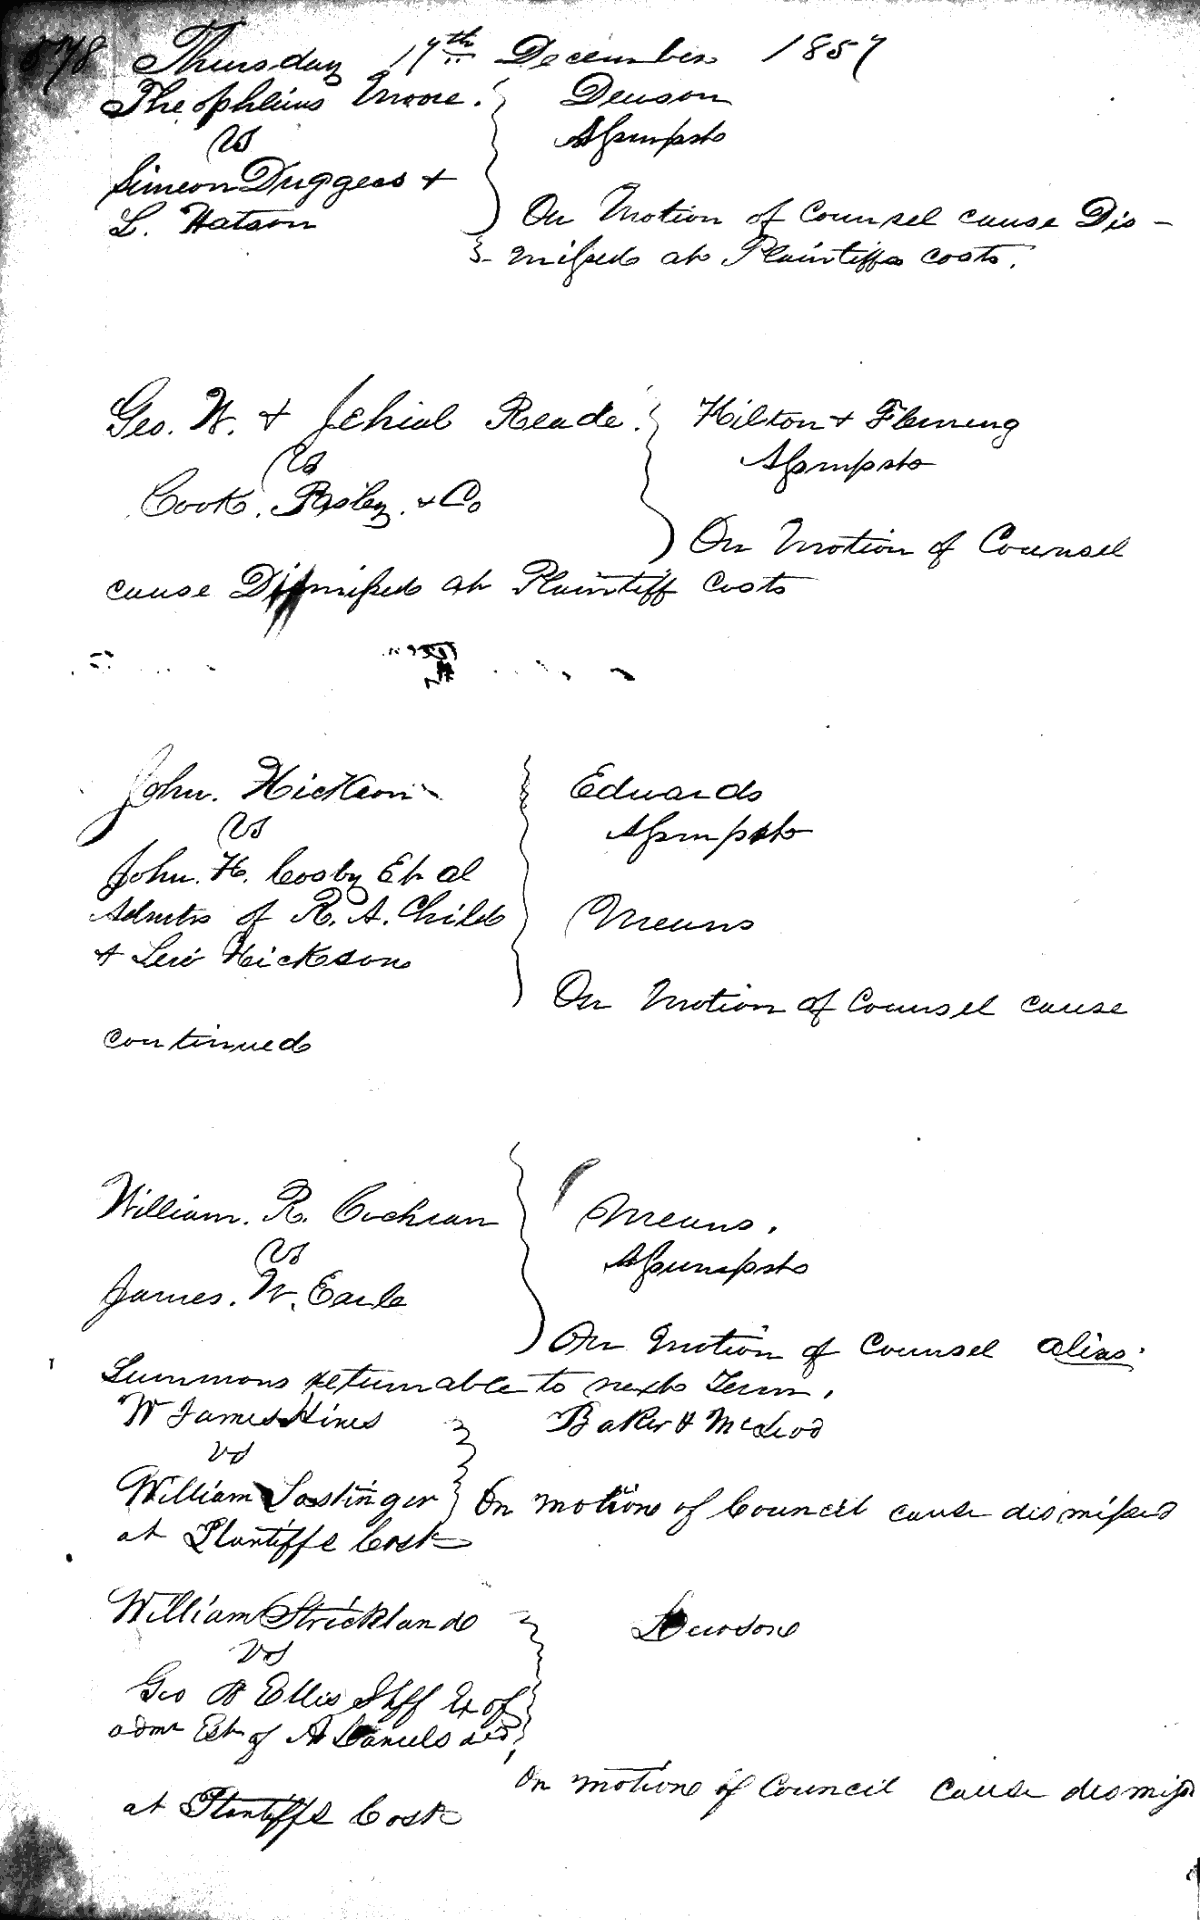 578 Thursday 17th December 1857
Theopheius Moore.
Deuson
vs
Assumpsto
Simeon Duggers +
L. Watson
On Motion of Counsel cause Dis-
missed at Plaintiffs costs.
Geo. W. + Jehial Reade.
Hilton + Fleming
vs
Assumpsto
Cook, & Co
On Motion of Counsel
cause Dismissed at Plaintiff costs
John. Hickson
Edwards
vs
Assumpsto
John. H. Cosby Et al
Admtrs of R. A. Child
Means
+ Levi Hickson
On Motion of Counsel cause
continued
William. R. Cochran
Means.
vs
Assumpsto
James. W. Earle
On Motion of Counsel alias.
Summons returnable to next Term.
W James Hines
Baker & McLeod
vs
William Lastinger
On motion of Council cause dismissed
at Plantiffs Cost
William Strickland
vs
Geo B Ellis Shff Ex of
admr Est of A Daniels dcd,
On motion of Council cause dismissd
at Plantiffs Cost